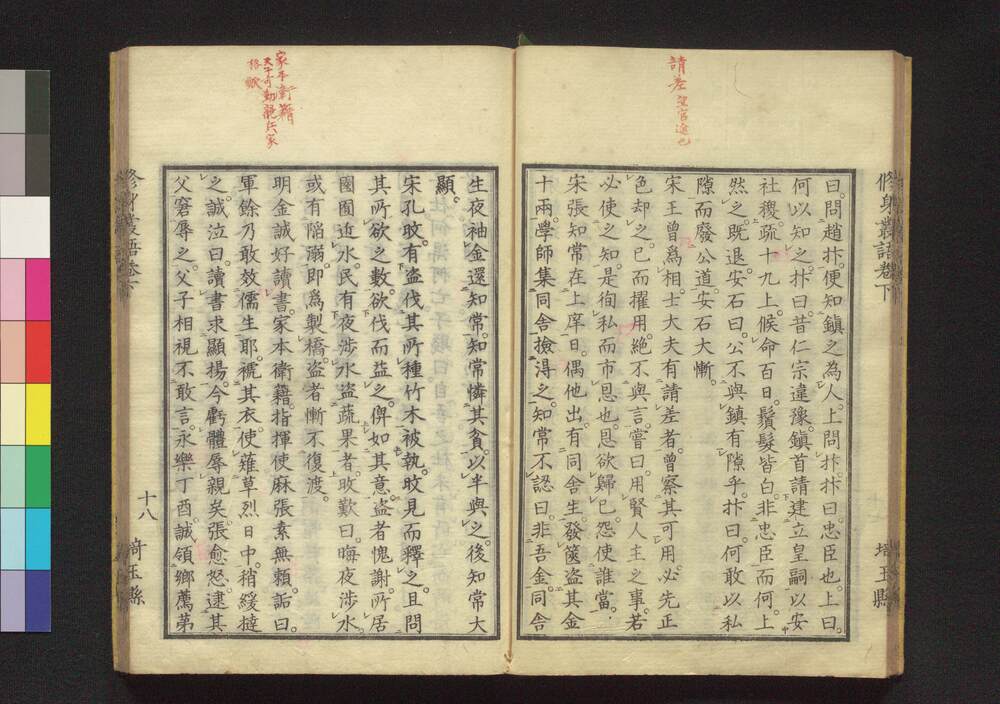 請差 望官途也
修身叢語卷下
埼玉縣
曰。問趙抃。便知鎭之為人。上問抃。抃曰忠臣也。上曰。
何以知之。抃曰。昔仁宗違豫。鎭首請建立皇嗣以安
社稷。疏十九上。候命百日。鬚髮皆白。非忠臣而何。上
然之。既退。安石曰。公不與鎭有隙乎。抃曰。何敢以私
隙而廢公道。安石大慚。
宋王曾爲相。士大夫有請差者。曾察其可用。必先正
色却之。已而擢用。絶不與言。嘗曰。用賢人主之事。若
必使之知。是徇私而市恩也。恩欲歸已。怨使誰當。
宋張知常在上庠日。偶他出。有同舍生發篋盗其金
十兩。學師集同舍撿得之。知常不認曰。非吾金。同舍
家本衛籍
生夜袖金還知常。知常憐其貧。以半與之。後知常大
顯。
宋孔旼。有盗伐其所種竹木被執。旼見而釋之。且問
其所欲之數。欲伐而益之。俾如其意。盗者愧謝。所居
園圃近水。民有夜渉水盗蔬果者。旼歎曰。晦夜渉水。
或有陷溺。即爲製橋。盗者慚不復渡。
明金誠好讀書。家本衛籍。指揮使麻張素無賴。詬曰。
軍餘乃敢效儒生耶。褫其衣。使薙草烈日中。稍緩撻
之。誠泣曰。讀書求顯揚。今虧體辱親矣。張愈怒。逮其
父窘辱之。父子相視不敢言。永樂丁酉。誠領鄉薦第
修身叢語卷下
十八
埼玉縣